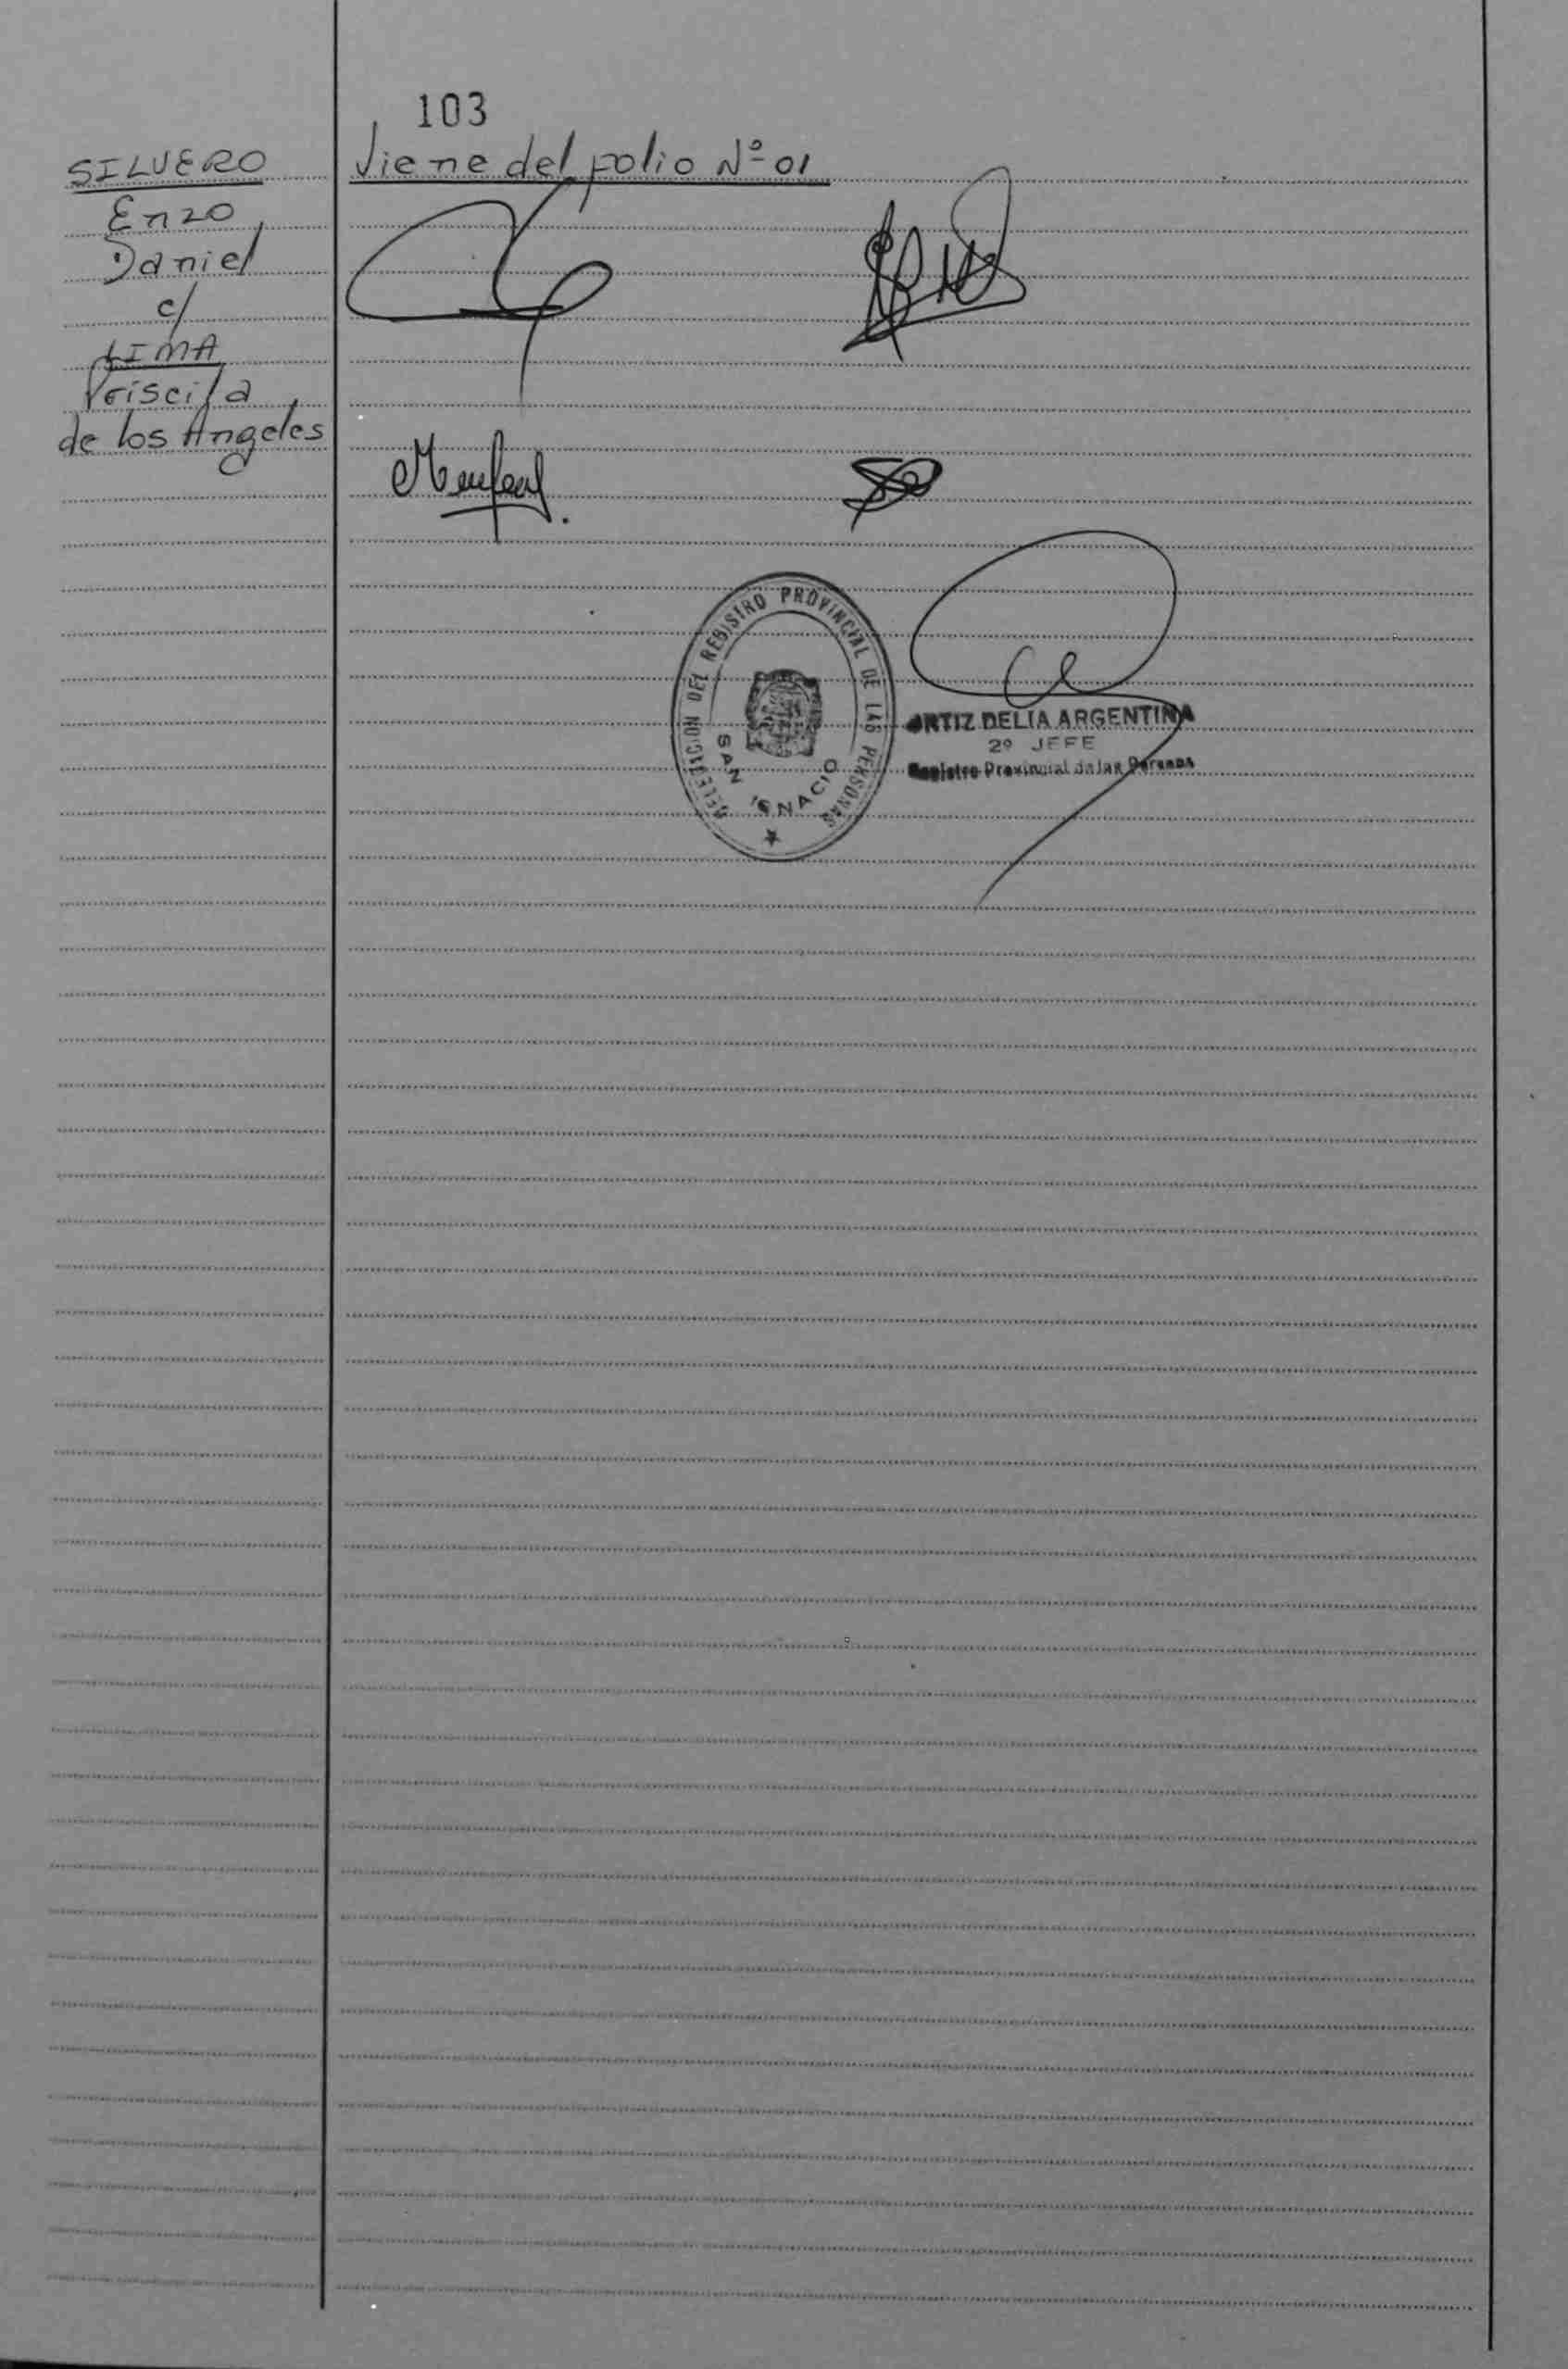 103
SILVERO
Enzo
Daniel
c/
LIMA
Priscila
de los Angeles
Viene del folio Nº 01
DELEGACION DEL REGISTRO PROVINCIAL DE LAS PERSONAS
SAN IGNACIO
ORTIZ DELIA ARGENTINA
2º JEFE
Registro Provincial de las Personas